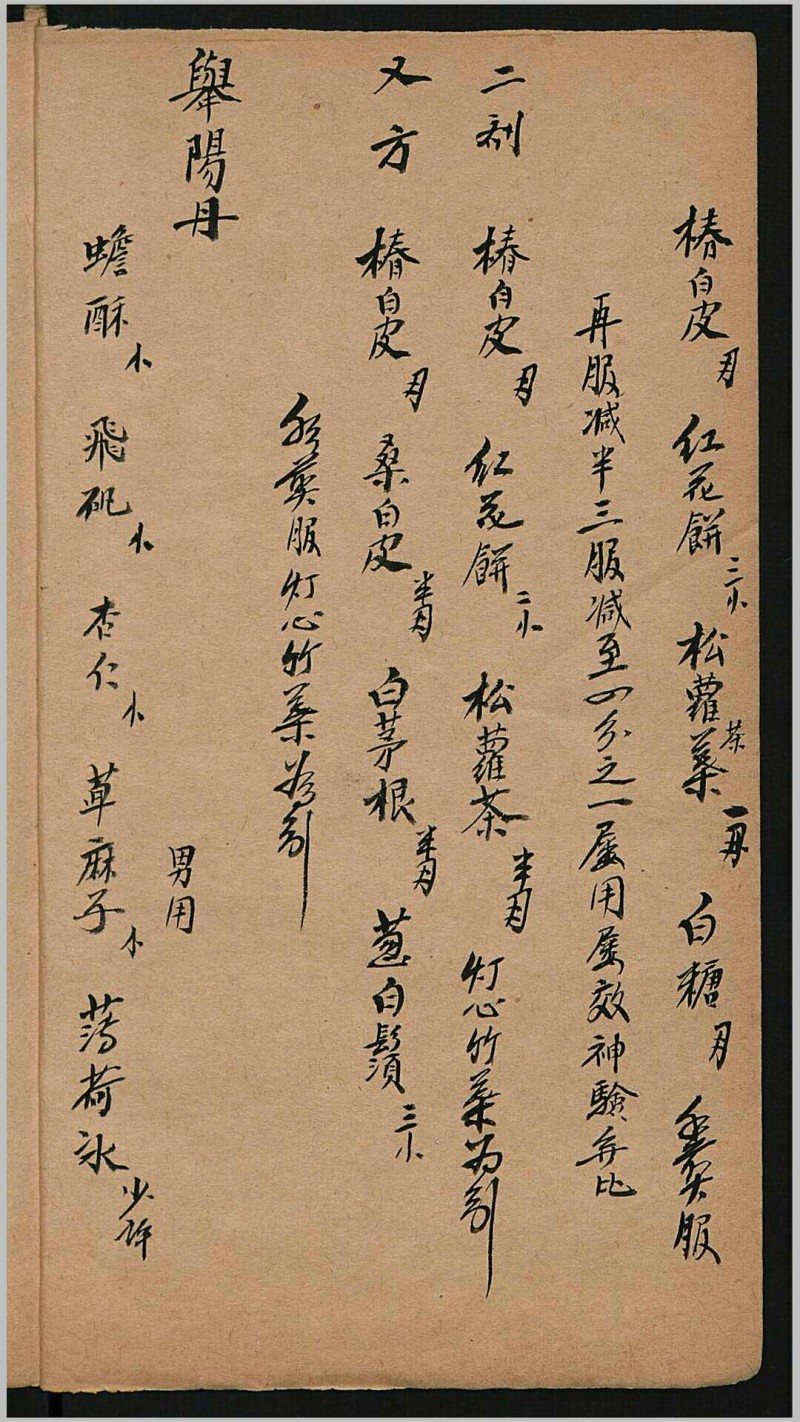 椿白皮 紅花餅 三小 松蘿茶葉 一 白糖 服
再服减半三服减至四分之一屡用屡效神驗无比
二剂 椿白皮 紅花餅 二小 松蘿茶 半 灯心竹葉为引
又方 椿白皮 桑白皮 半 白茅根 半 葱白鬚 三小
服灯心竹葉为引
舉陽丹 男用
蟾酥 小 飛矾 小 杏仁 小 草麻子 小 薄荷冰 少许